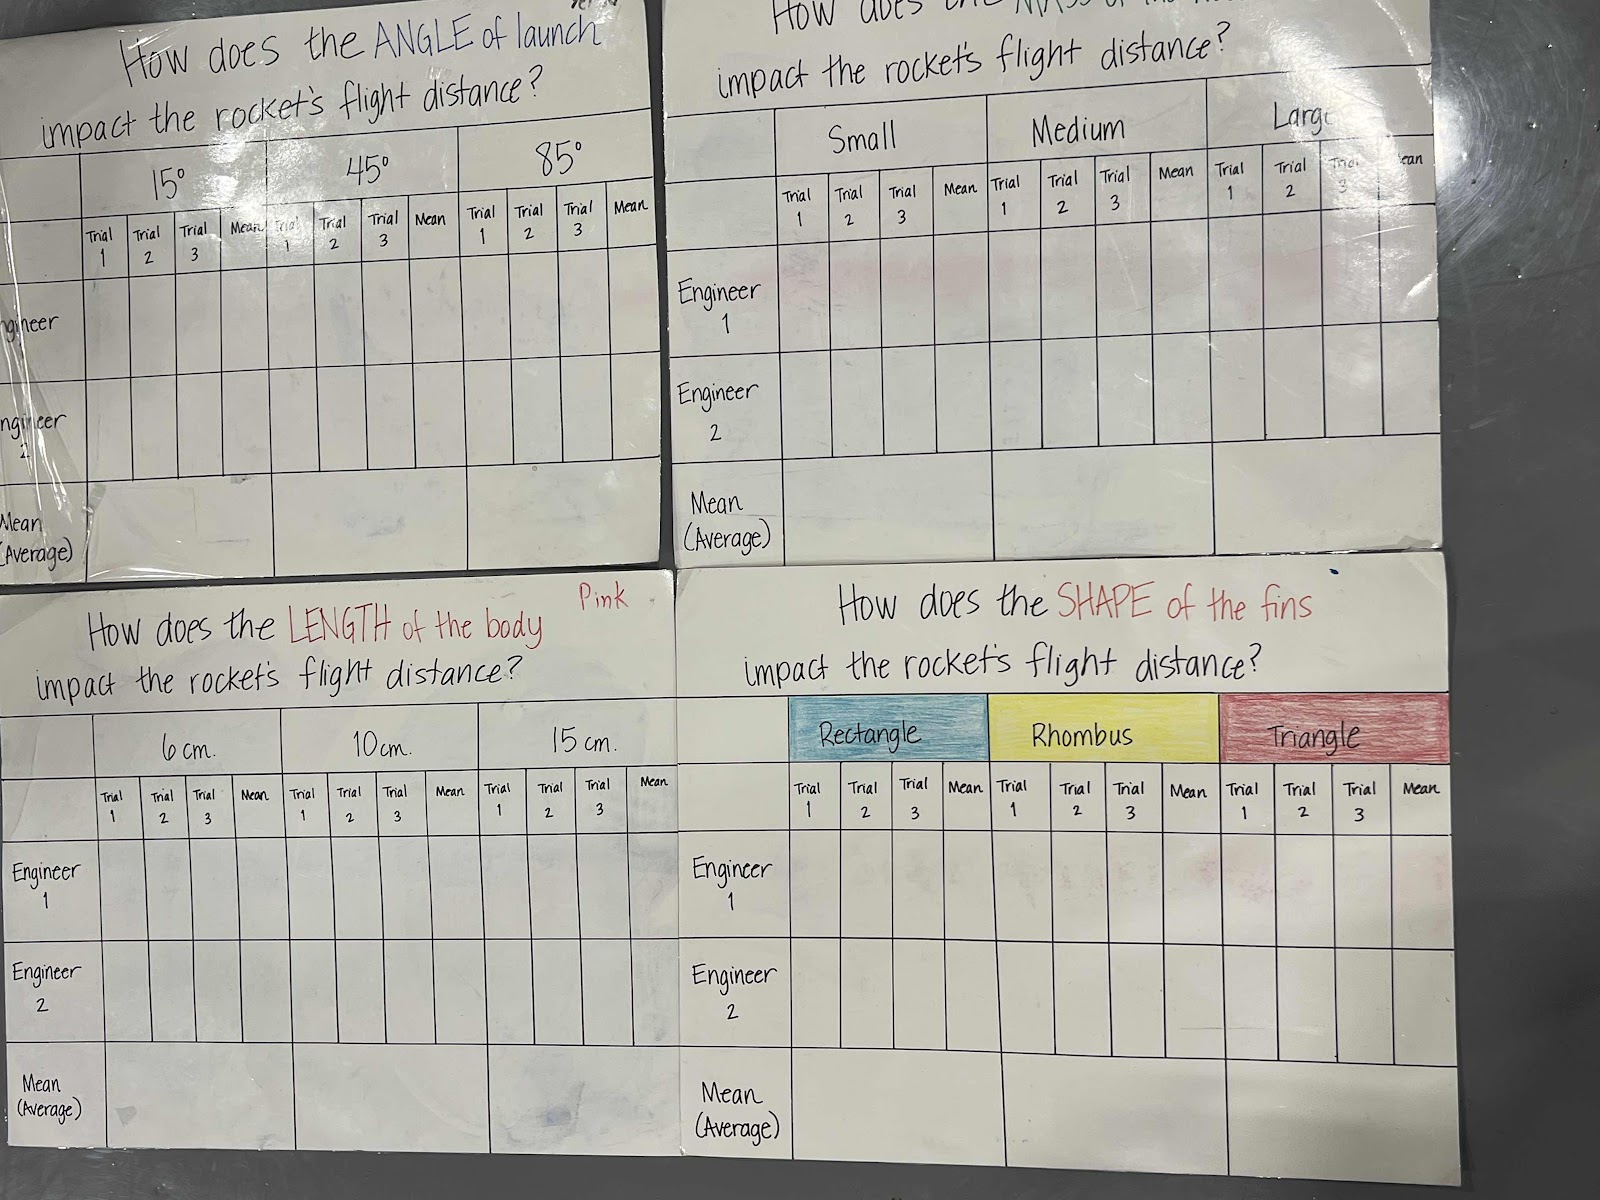 How does the ANGLE of launch
impact the rocket's flight distance?
15° 45° 85°
Trial 1 Trial 2 Trial 3 Mean Trial 1 Trial 2 Trial 3 Mean Trial 1 Trial 2 Trial 3 Mean
ngineer
ngineer 2
Mean (Average)
How does the MASS of the
impact the rocket's flight distance?
Small Medium Large
Trial 1 Trial 2 Trial 3 Mean Trial 1 Trial 2 Trial 3 Mean Trial 1 Trial 2 Trial 3 ean
Engineer 1
Engineer 2
Mean (Average)
Pink
How does the LENGTH of the body
impact the rocket's flight distance?
6 cm. 10 cm. 15 cm.
Trial 1 Trial 2 Trial 3 Mean Trial 1 Trial 2 Trial 3 Mean Trial 1 Trial 2 Trial 3 Mean
Engineer 1
Engineer 2
Mean (Average)
How does the SHAPE of the fins
impact the rocket's flight distance?
Rectangle Rhombus Triangle
Trial 1 Trial 2 Trial 3 Mean Trial 1 Trial 2 Trial 3 Mean Trial 1 Trial 2 Trial 3 Mean
Engineer 1
Engineer 2
Mean (Average)